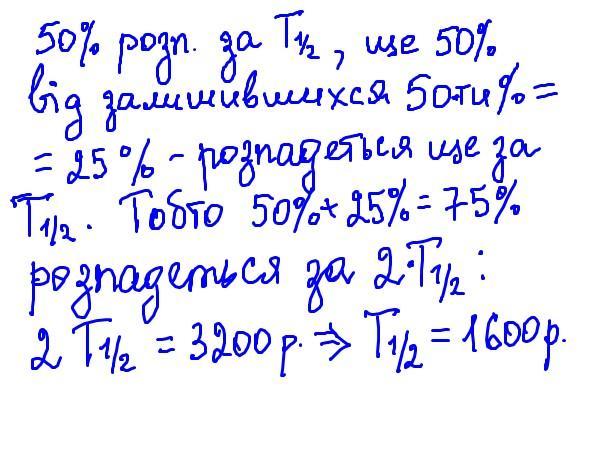 50% розп. за T1/2, ще 50%
від залишившихся 50-ти% =
= 25% - розпадеться ще за
T1/2. Тобто 50%+25%=75%
розпадеться за 2·T1/2:
2 T1/2 = 3200 р. ⇒ T1/2 = 1600 р.